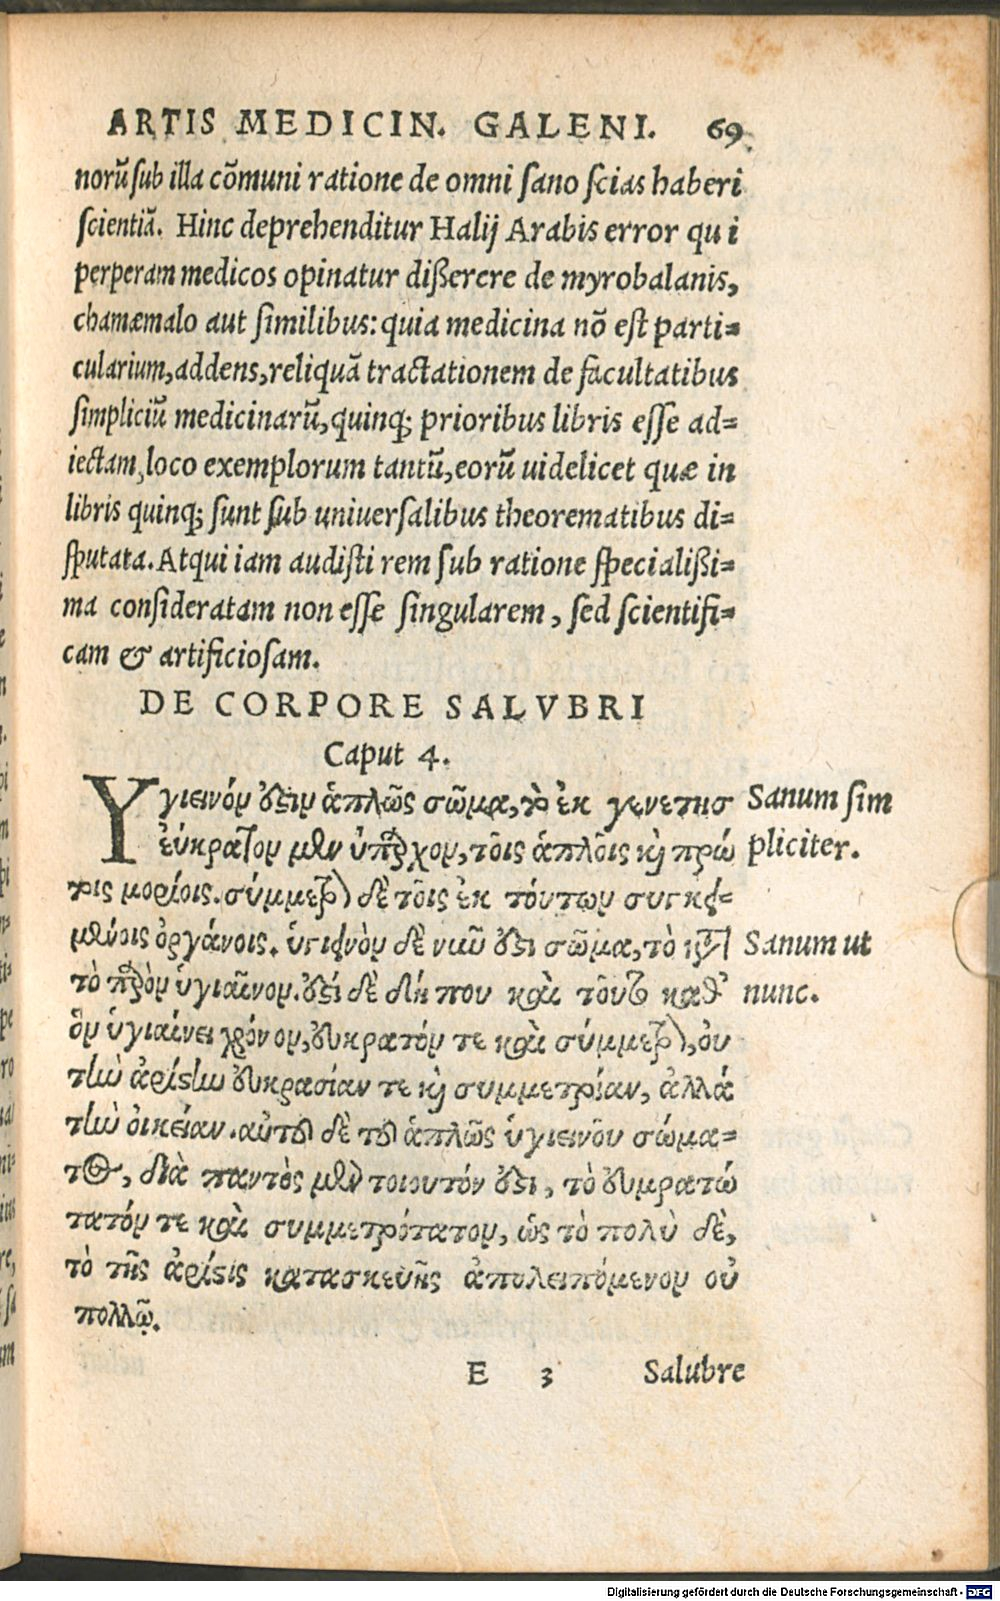 ARTIS MEDICIN. GALENI. 69
norũ sub illa cõmuni ratione de omni sano scias haberi
scientiã. Hinc deprehenditur Halij Arabis error qui
perperam medicos opinatur dißerere de myrobalanis,
chamæmalo aut similibus: quia medicina nõ est parti=
cularium, addens, reliquã tractationem de facultatibus
simpliciũ medicinarũ, quinq; prioribus libris esse ad=
iectam, loco exemplorum tantũ, eorũ uidelicet quæ in
libris quinq; sunt sub uniuersalibus theorematibus di=
sputata. Atqui iam audisti rem sub ratione specialißi=
ma consideratam non esse singularem, sed scientifi=
cam & artificiosam.
DE CORPORE SALVBRI
Caput 4.
Υγιεινόν ἐστιν ἁπλῶς σῶμα, τὸ ἐκ γενετης
εὐκρατον μὲν ὑπάρχον, τοῖς ἁπλοῖς καὶ πρώ
τοις μορίοις. σύμμετρον δὲ τοῖς ἐκ τούτων συγκει=
μένοις ὀργάνοις. ὑγιεινὸν δὲ νῦν ἐστι σῶμα, τὸ κατὰ
τὸ παρὸν ὑγιαῖνον. ἐστί δὲ δή που καὶ τοῦτο καθ'
ὃν ὑγιαίνει χρόνον, εὐκρατόν τε καὶ σύμμετρον, οὐ
τὴν ἀρίστην εὐκρασίαν τε καὶ συμμετρίαν, ἀλλά
τὴν οἰκείαν. αὐτοῦ δὲ τοῦ ἁπλῶς ὑγιεινοῦ σώμα=
τος, διὰ παντὸς μὲν τοιουτόν ἐστι, τὸ εὐκρατώ
τατόν τε καὶ συμμετρότατον, ὡς τὸ πολὺ δὲ,
τὸ τῆς ἀρίστης κατασκευῆς ἀπολειπόμενον οὐ
πολλῷ.
Sanum sim
pliciter.
Sanum ut
nunc.
E 3 Salubre
Digitalisierung gefördert durch die Deutsche Forschungsgemeinschaft - DFG